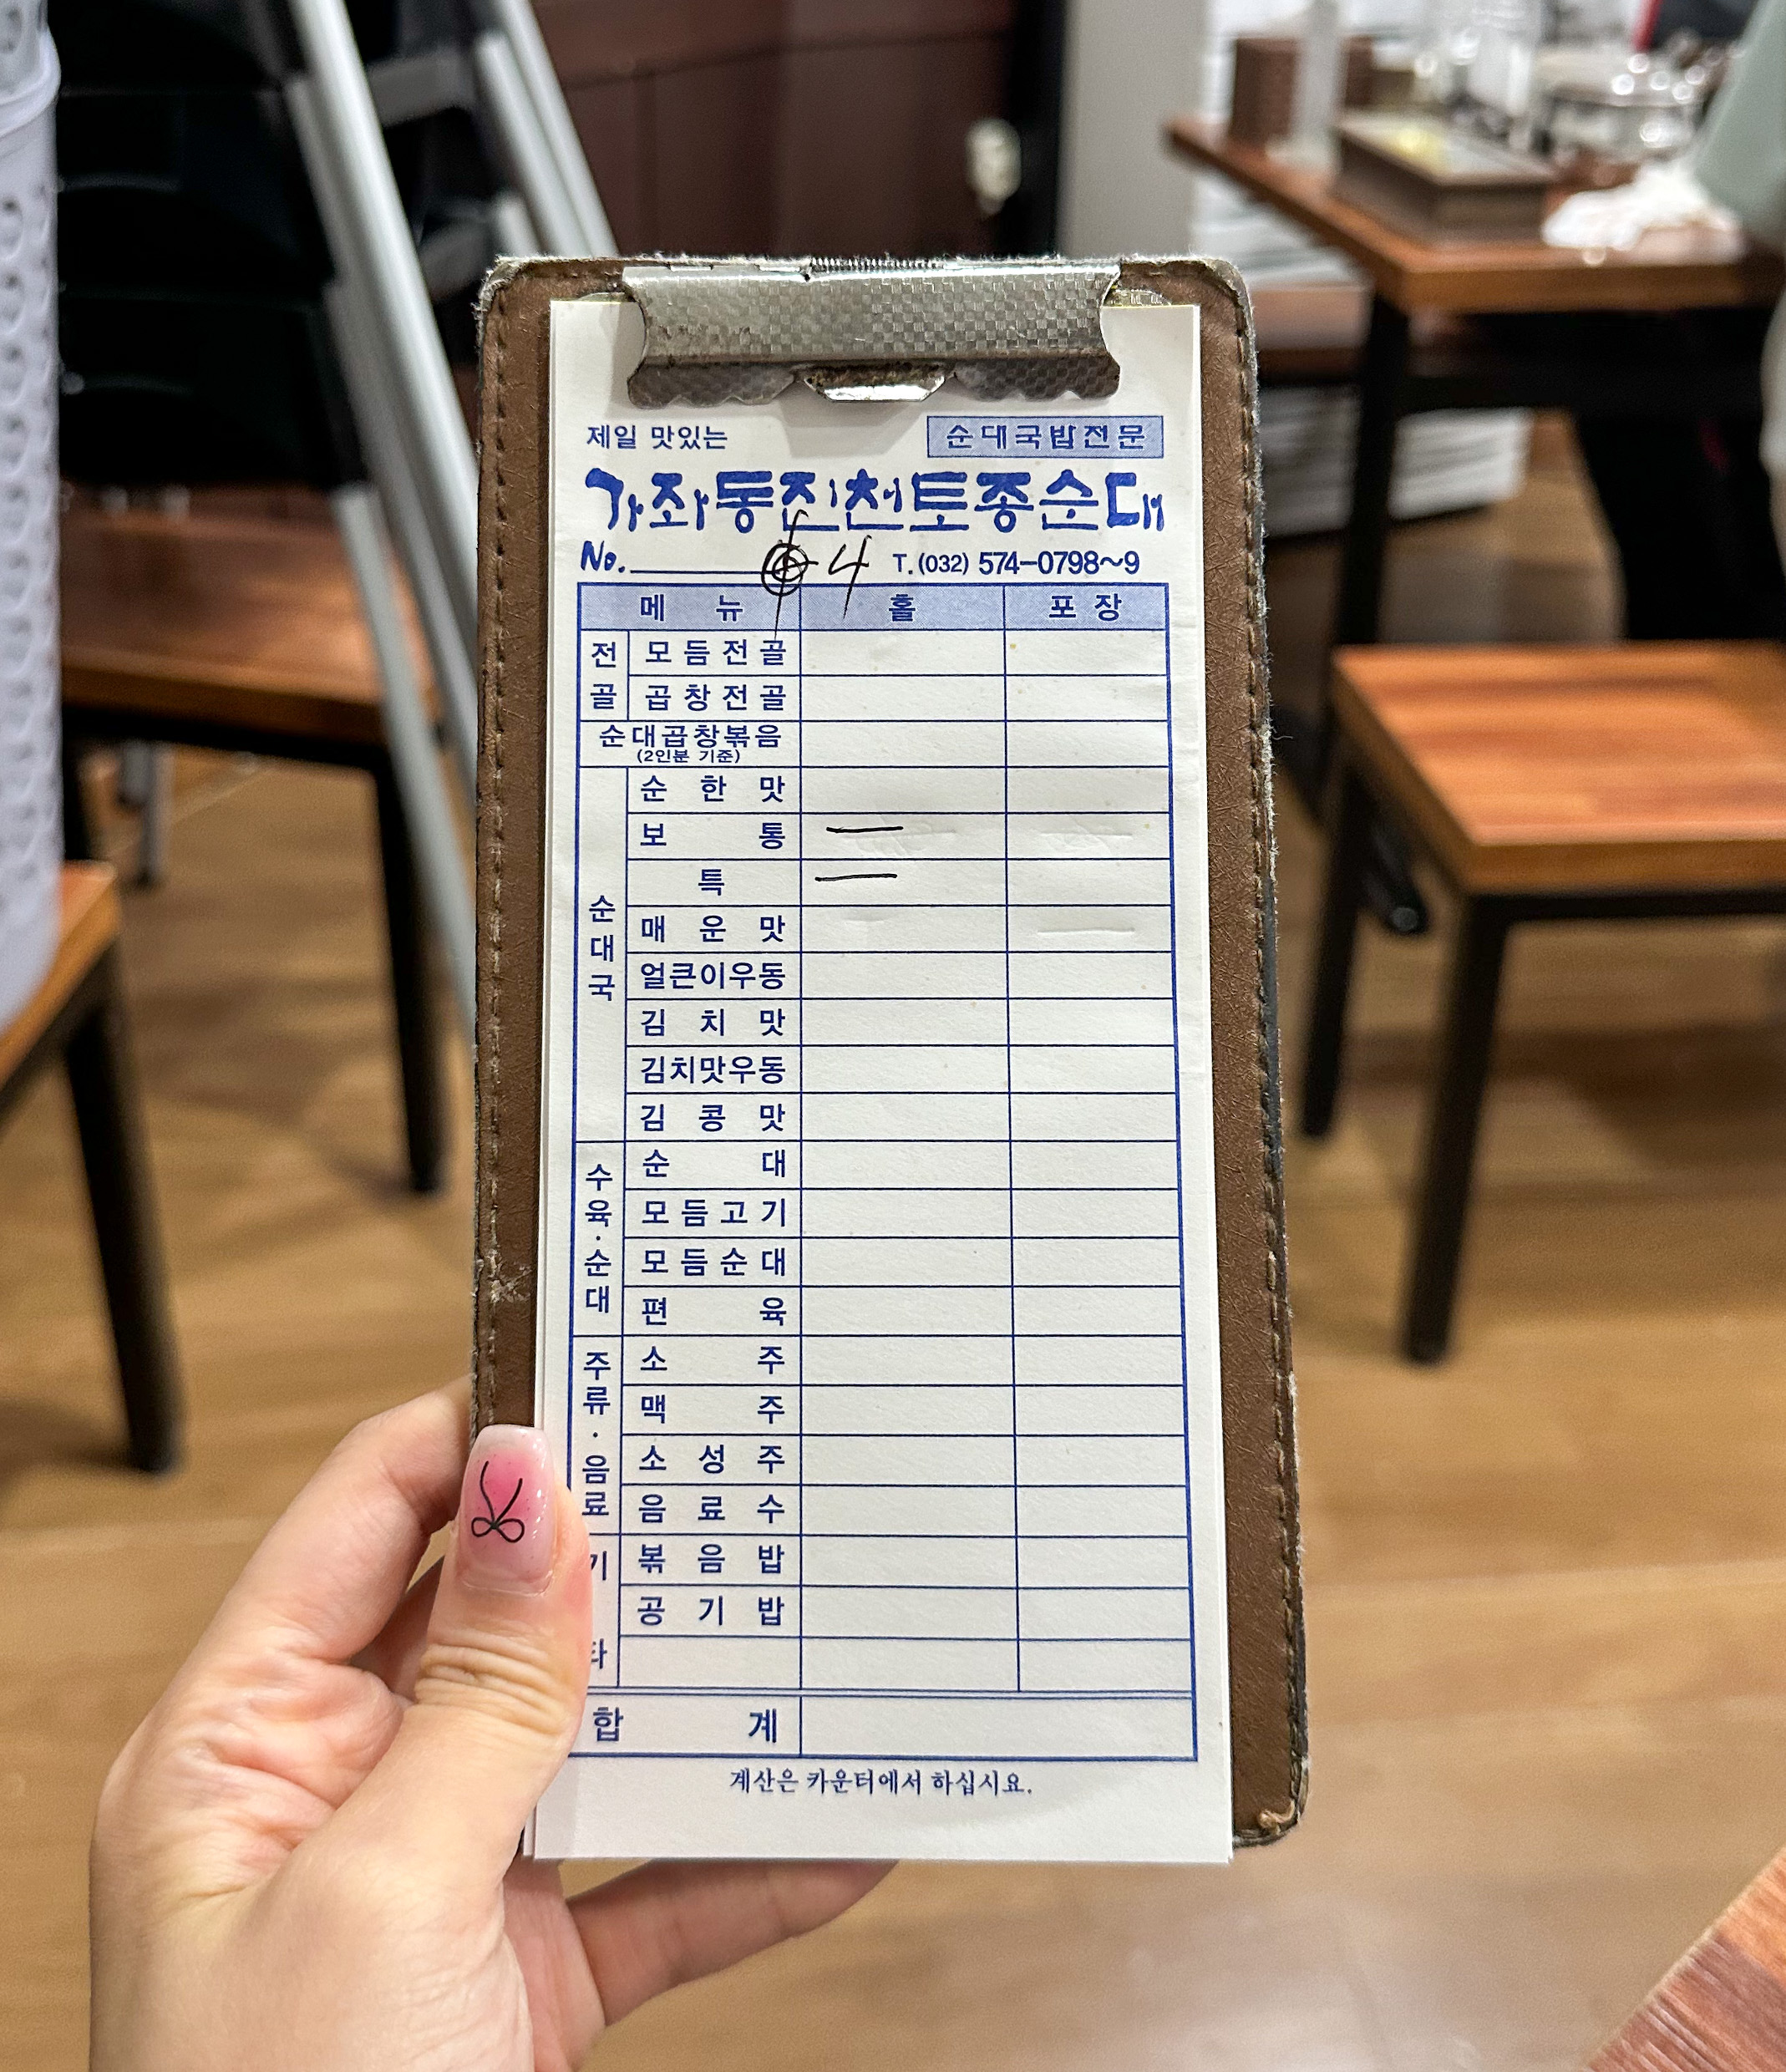 제일 맛있는 순대국밥전문
가좌동진천토종순대
No. 4 T.(032) 574-0798~9
메 뉴 홀 포 장
전골
모듬전골
곱창전골
순대곱창볶음
(2인분 기준)
순대국
순 한 맛
보 통 —
특 —
매 운 맛
얼큰이우동
김 치 맛
김치맛우동
김 콩 맛
수육·순대
순 대
모듬고기
모듬순대
편 육
주류·음료
소 주
맥 주
소 성 주
음 료 수
기타
볶 음 밥
공 기 밥
합 계
계산은 카운터에서 하십시요.